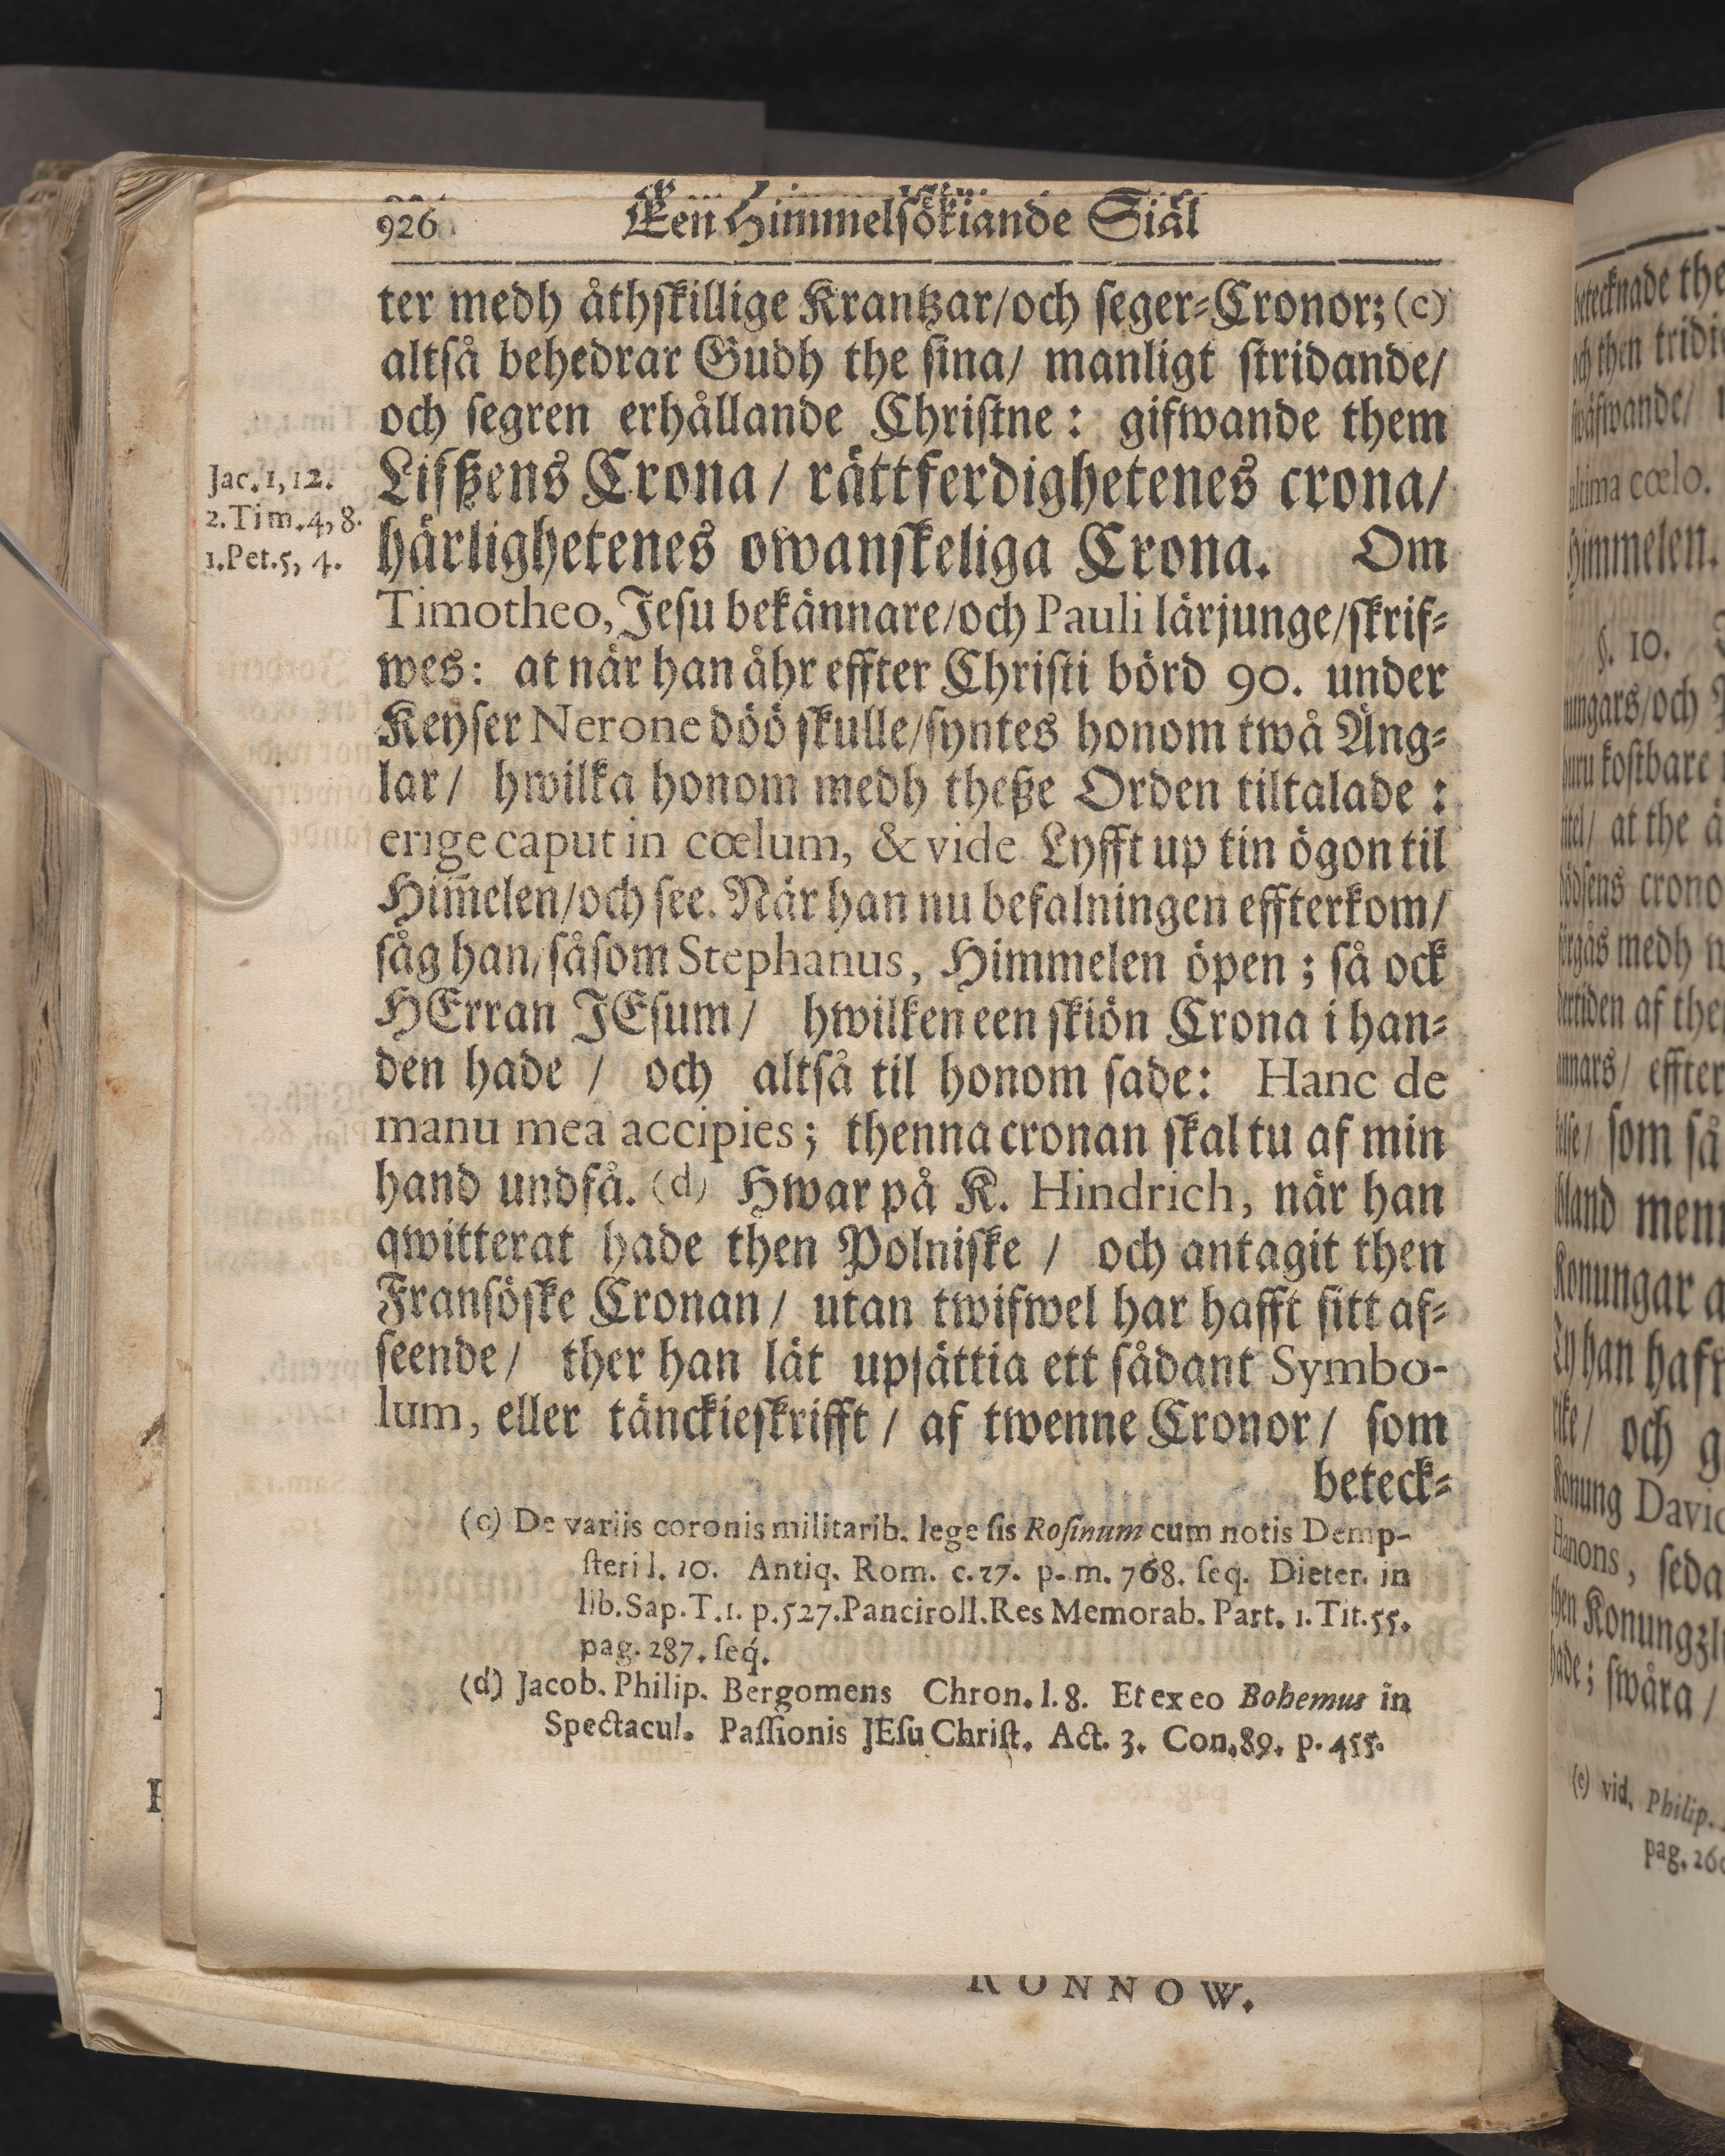 926 Een Himmelsökiande Siäl
ter medh åthskillige Krantzar/och seger-Cronor; (c)
altså behedrar Gudh the sina/ manligt stridande/
och segren erhållande Christne: gifwande them
Lifßens Crona/ rättferdighetenes crona/
härlighetenes owanskeliga Crona. Om
Jac. 1, 12.
2. Tim. 4, 8.
1. Pet. 5, 4.
Timotheo, Jesu bekännare/och Pauli lärjunge/skrif-
wes: at när han åhr effter Christi börd 90. under
Keyser Nerone döö skulle/syntes honom twå Äng-
lar/ hwilka honom medh theße Orden tiltalade:
erige caput in cœlum, & vide Lyfft up tin ögon til
Him̃elen/och see. När han nu befalningen effterkom/
såg han/såsom Stephanus, Himmelen öpen; så ock
HErran JEsum/ hwilken een skiön Crona i han-
den hade / och altså til honom sade: Hanc de
manu mea accipies; thenna cronan skal tu af min
hand undfå. (d) Hwar på K. Hindrich, när han
qwitterat hade then Polniske / och antagit then
Fransöske Cronan/ utan twifwel har hafft sitt af-
seende/ ther han lät upsättia ett sådant Symbo-
lum, eller tänckieskrifft/ af twenne Cronor/ som
beteck-
(c) De variis coronis militarib. lege sis Rosinum cum notis Demp-
steri l. 10. Antiq. Rom. c. 27. p. m. 768. seq. Dieter. in
lib. Sap. T. 1. p. 527. Panciroll. Res Memorab. Part. 1. Tit. 55.
pag. 287. seq́.
(d) Jacob. Philip. Bergomens Chron. l. 8. Et ex eo Bohemus in
Spectacul. Passionis JEsu Christ. Act. 3. Con. 89. p. 455.
RONNOW.
betecknade the
och then tridi
ultima cœlo.
Himmelen.
§. 10.
nungars/och
kostbare
at the
crono
medh
af the
effter
som så
menn
Konungar a
han haff
och g
Konung David
Hanons, seda
then Konungzl
hade; swåra/
(e) vid. Philip.
pag. 260